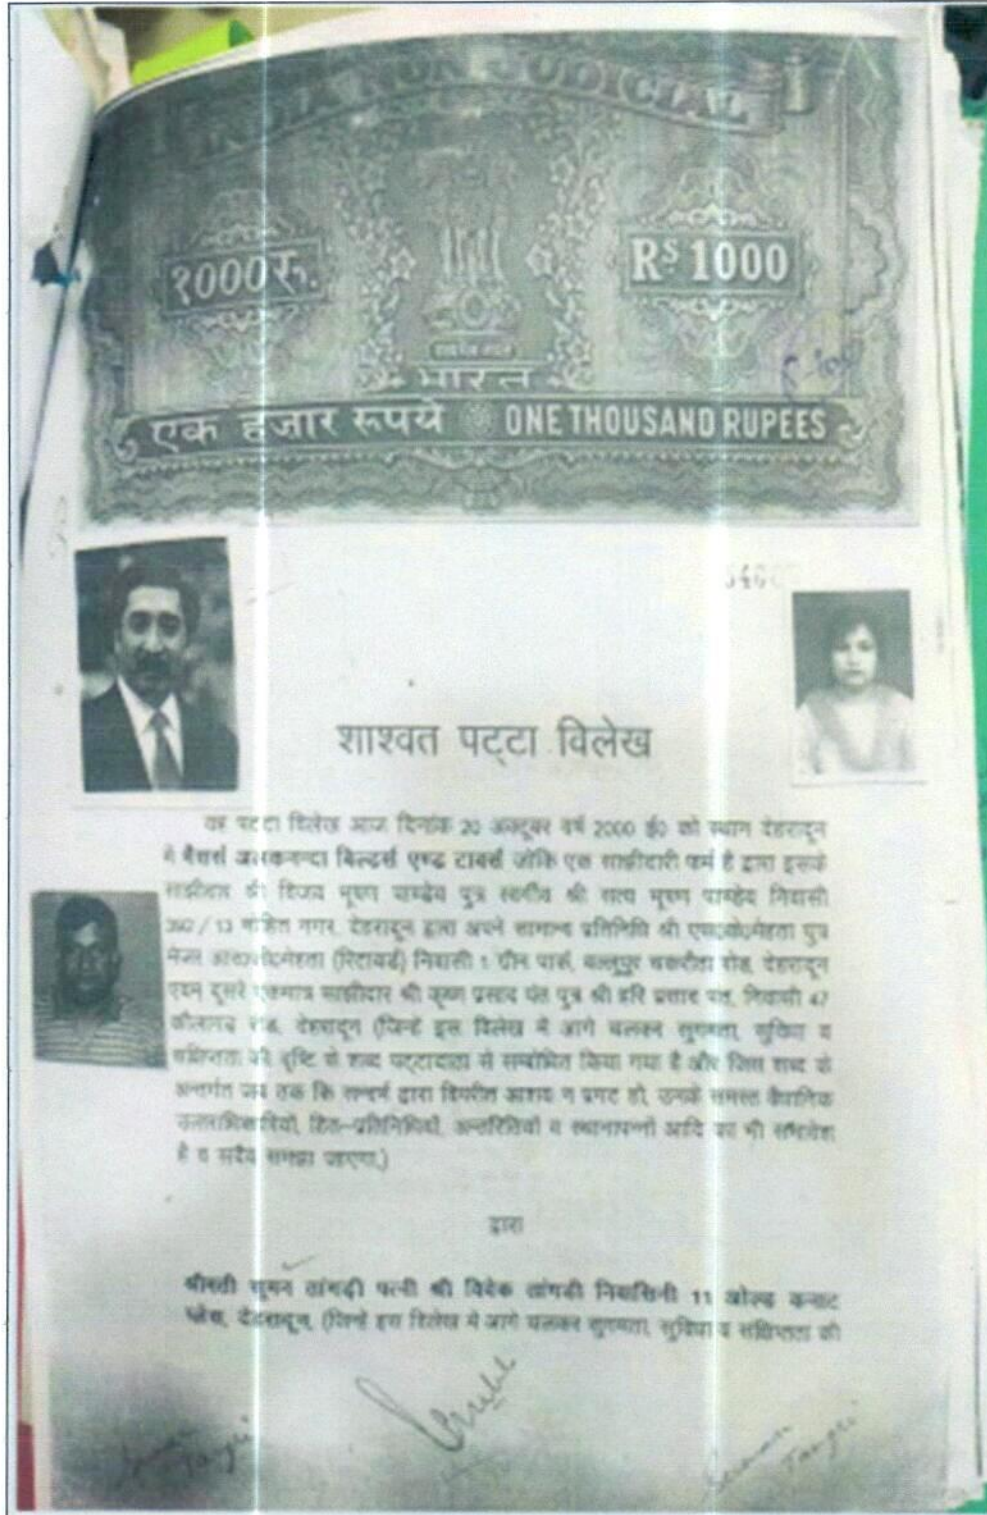 INDIA NON JUDICIAL
१000रु.
Rs 1000
सत्यमेव जयते
भारत
एक हजार रूपये ONE THOUSAND RUPEES
शाश्वत पट्टा विलेख
यह पट्टा विलेख आज दिनांक 20 अक्टूबर वर्ष 2000 ई0 को स्थान देहरादून
में मैसर्स अलकनन्दा बिल्डर्स एण्ड टावर्स जोकि एक साझीदारी फर्म है द्वारा इसके
साझीदार श्री विजय भूषण पाण्डेय पुत्र स्वर्गीय श्री सत्य भूषण पाण्डेय निवासी
/ 13 नगर, देहरादून द्वारा अपने सामान्य प्रतिनिधि श्री मेहता पुत्र
मेजर मेहता (रिटायर्ड) निवासी 1 ग्रीन पार्क, बल्लुपुर चकरौता रोड, देहरादून
एवम दूसरे एकमात्र साझीदार श्री कृष्ण प्रसाद पंत पुत्र श्री हरि प्रसाद पंत, निवासी 47
कौलागढ रोड, देहरादून (जिन्हें इस विलेख में आगे चलकर सुगमता, सुविधा व
संक्षिप्तता की दृष्टि से शब्द पट्टादाता से सम्बोधित किया गया है और जिस शब्द के
अन्तर्गत जब तक कि सन्दर्भ द्वारा विपरीत आशय न प्रगट हो, उनके समस्त वैधानिक
उत्तराधिकारियों, हित-प्रतिनिधियों, अन्तरितियों व स्थानापन्नों आदि का भी समावेश
है व सदैव समझा जाएगा)
द्वारा
श्रीमती सुमन तांगड़ी पत्नी श्री विवेक तांगडी निवासिनी 11 ओल्ड कनाट
प्लेस, देहरादून, (जिन्हें इस विलेख में आगे चलकर सुगमता, सुविधा व संक्षिप्तता की
Suman Tangri
Suman Tangri